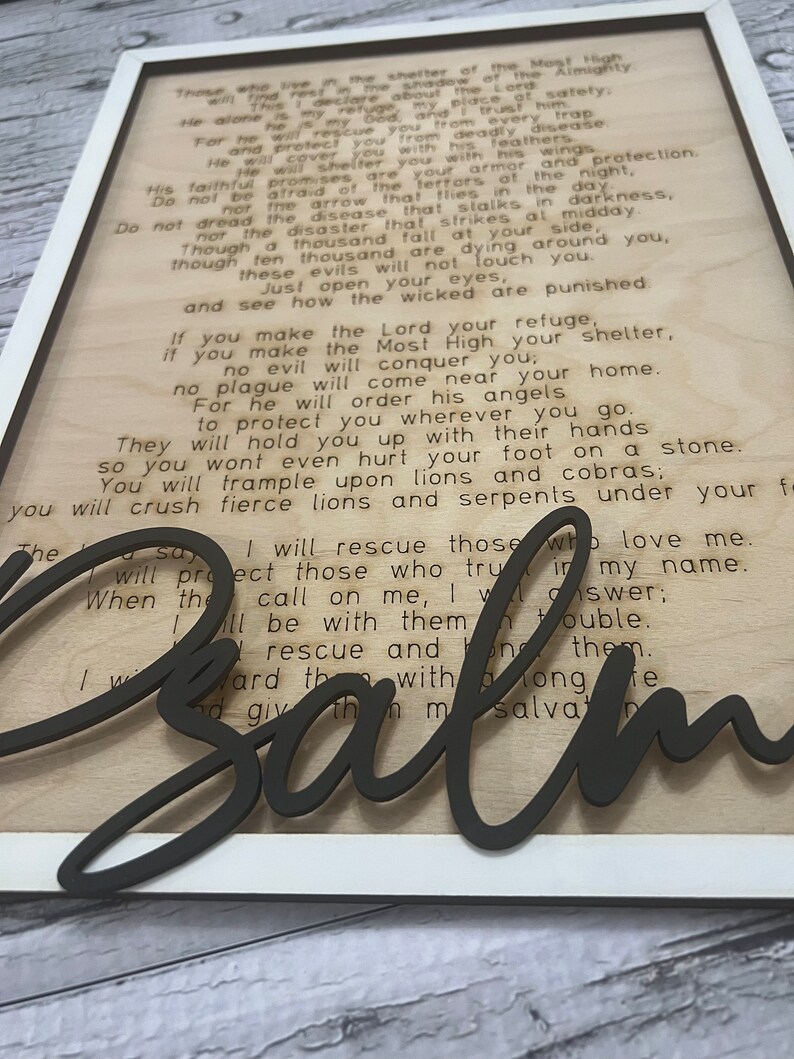 Those who live in the shelter of the Most High
will find rest in the shadow of the Almighty.
This I declare about the Lord:
He alone is my refuge, my place of safety;
he is my God, and I trust him.
For he will rescue you from every trap
and protect you from deadly disease.
He will cover you with his feathers.
He will shelter you with his wings.
His faithful promises are your armor and protection.
Do not be afraid of the terrors of the night,
nor the arrow that flies in the day.
Do not dread the disease that stalks in darkness,
nor the disaster that strikes at midday.
Though a thousand fall at your side,
though ten thousand are dying around you,
these evils will not touch you.
Just open your eyes,
and see how the wicked are punished.
If you make the Lord your refuge,
if you make the Most High your shelter,
no evil will conquer you;
no plague will come near your home.
For he will order his angels
to protect you wherever you go.
They will hold you up with their hands
so you wont even hurt your foot on a stone.
You will trample upon lions and cobras;
you will crush fierce lions and serpents under your
The I will rescue those who love me.
I will protect those who trust in my name.
When they call on me, I will answer;
I will be with them in trouble.
rescue and honor them.
I will reward them with a long life
and give them my salvation
Psalm